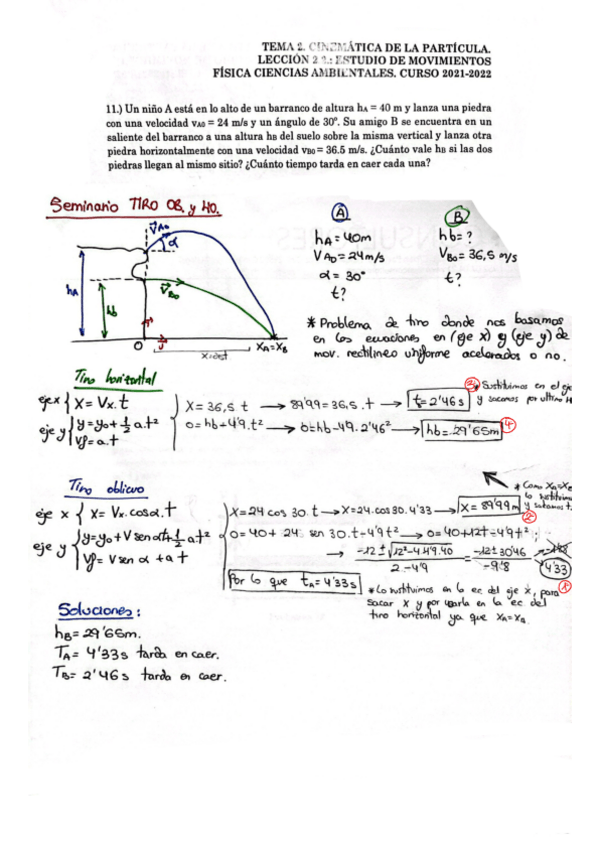 TEMA 2. CINEMÁTICA DE LA PARTÍCULA.
LECCIÓN 2.2.: ESTUDIO DE MOVIMIENTOS
FÍSICA CIENCIAS AMBIENTALES. CURSO 2021-2022
11.) Un niño A está en lo alto de un barranco de altura hA = 40 m y lanza una piedra
con una velocidad vA0 = 24 m/s y un ángulo de 30º. Su amigo B se encuentra en un
saliente del barranco a una altura hB del suelo sobre la misma vertical y lanza otra
piedra horizontalmente con una velocidad vB0 = 36.5 m/s. ¿Cuánto vale hB si las dos
piedras llegan al mismo sitio? ¿Cuánto tiempo tarda en caer cada una?
Seminario TIRO OB. y HO.
VA0
α
VB0
hA
hb
O
XA=XB
A
hA = 40m
VA0 = 24m/s
α = 30º
t?
B
hb = ?
VB0 = 36,5 m/s
t?
* Problema de tiro donde nos basamos
en las ecuaciones en (eje x) y (eje y) de
mov. rectilíneo uniforme acelerados o no.
Tiro horizontal
eje x { X = Vx.t
eje y { y = y0 + 1/2 a.t²
Vf = a.t
X = 36,5 t → 89'99 = 36,5.t → t = 2'46 s
0 = hb + 4'9.t² → 0 = hb - 49.2'46² → hb = 29'65m
3 Sustituimos en el eje
y sacamos por ultimo
4
* Como XA=XB
lo sustituimos
y sacamos t.
Tiro oblicuo
eje x { X = Vx.cosα.t
eje y { y = y0 + V senαt + 1/2 a t²
Vf = V sen α + a t
X = 24 cos 30.t → X = 24.cos 30.4'33 → X = 89'99 m
2
0 = 40 + 24 sen 30.t - 4'9 t² → 0 = 40 + 12t - 4'9 t²;
→ -12 ± √12² - 4.4'9.40 / 2.-4'9 = -12 ± 30'46 / -9'8
4'33
1
Por lo que tA = 4'33s
* Lo sustituimos en la ec. del eje x, para
sacar X y por usarla en la ec. del
tiro horizontal ya que XA=XB.
Soluciones:
hB = 29'65m.
TA = 4'33 s tarda en caer.
TB = 2'46 s tarda en caer.